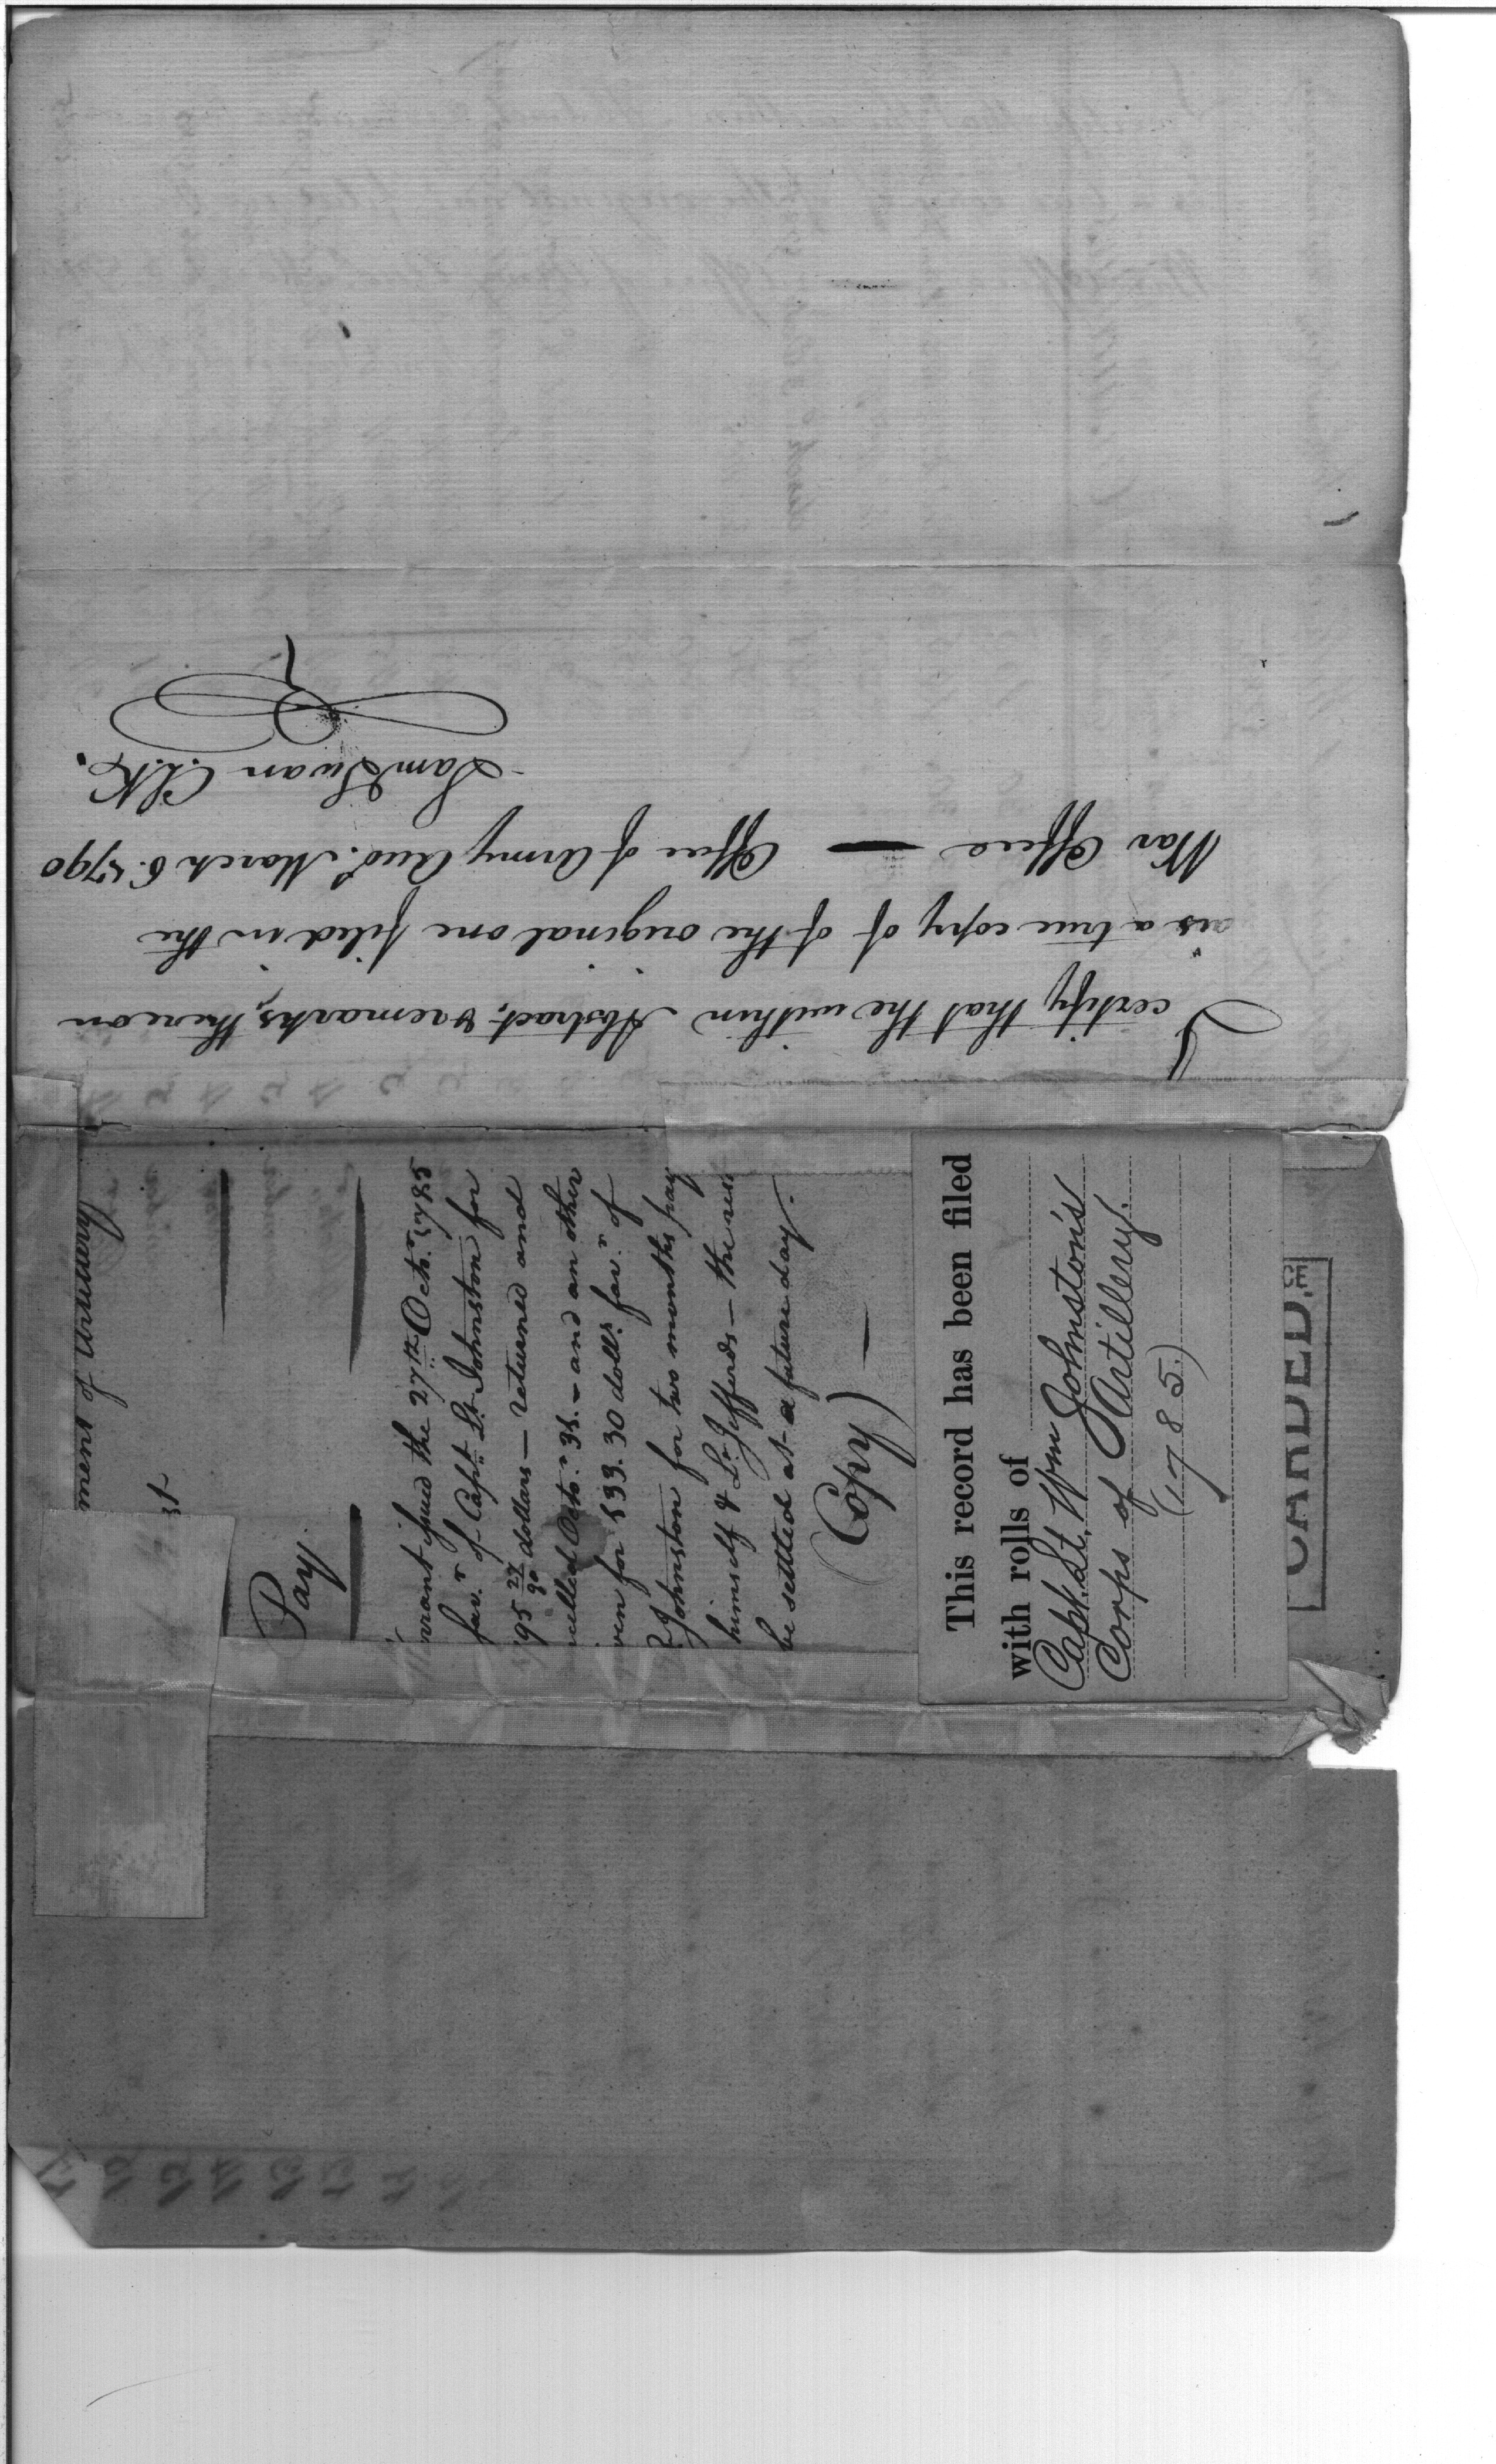 I certify that the within Abstract, & remarks, thereon
is a true copy of of the original one filed in the
War Office — Office of Army Accts. March 6. 1790
Saml Swan Clk.
Pay
rrant issued the 27th Octo.r 1785
fav.r of Capt. Lt. Johnston for
95 27/90 dollars — returned and
celled Octo.r 31. — and an other
ven for 533.30 dolls. fav.r of
Johnston for two months pay
himself & Lt. Jeffords — the res
be settled at a future day.
(Copy) —
This record has been filed
with rolls of
Capt. Lt. Wm Johnston's
Corps of Artillery.
(1785.)
CARDED,